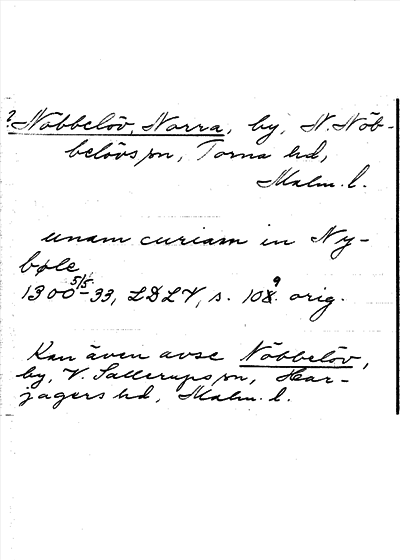 ? Nöbbelöv, Norra, by, N. Nöb-
belövs sn, Torna hd,
Malm. l.
unam curiam in Ny-
bøle
1300 5/5-33, LDLV, s. 109. orig.
Kan även avse Nöbbelöv,
by, V. Sallerups sn, Har-
jagers hd, Malm. l.